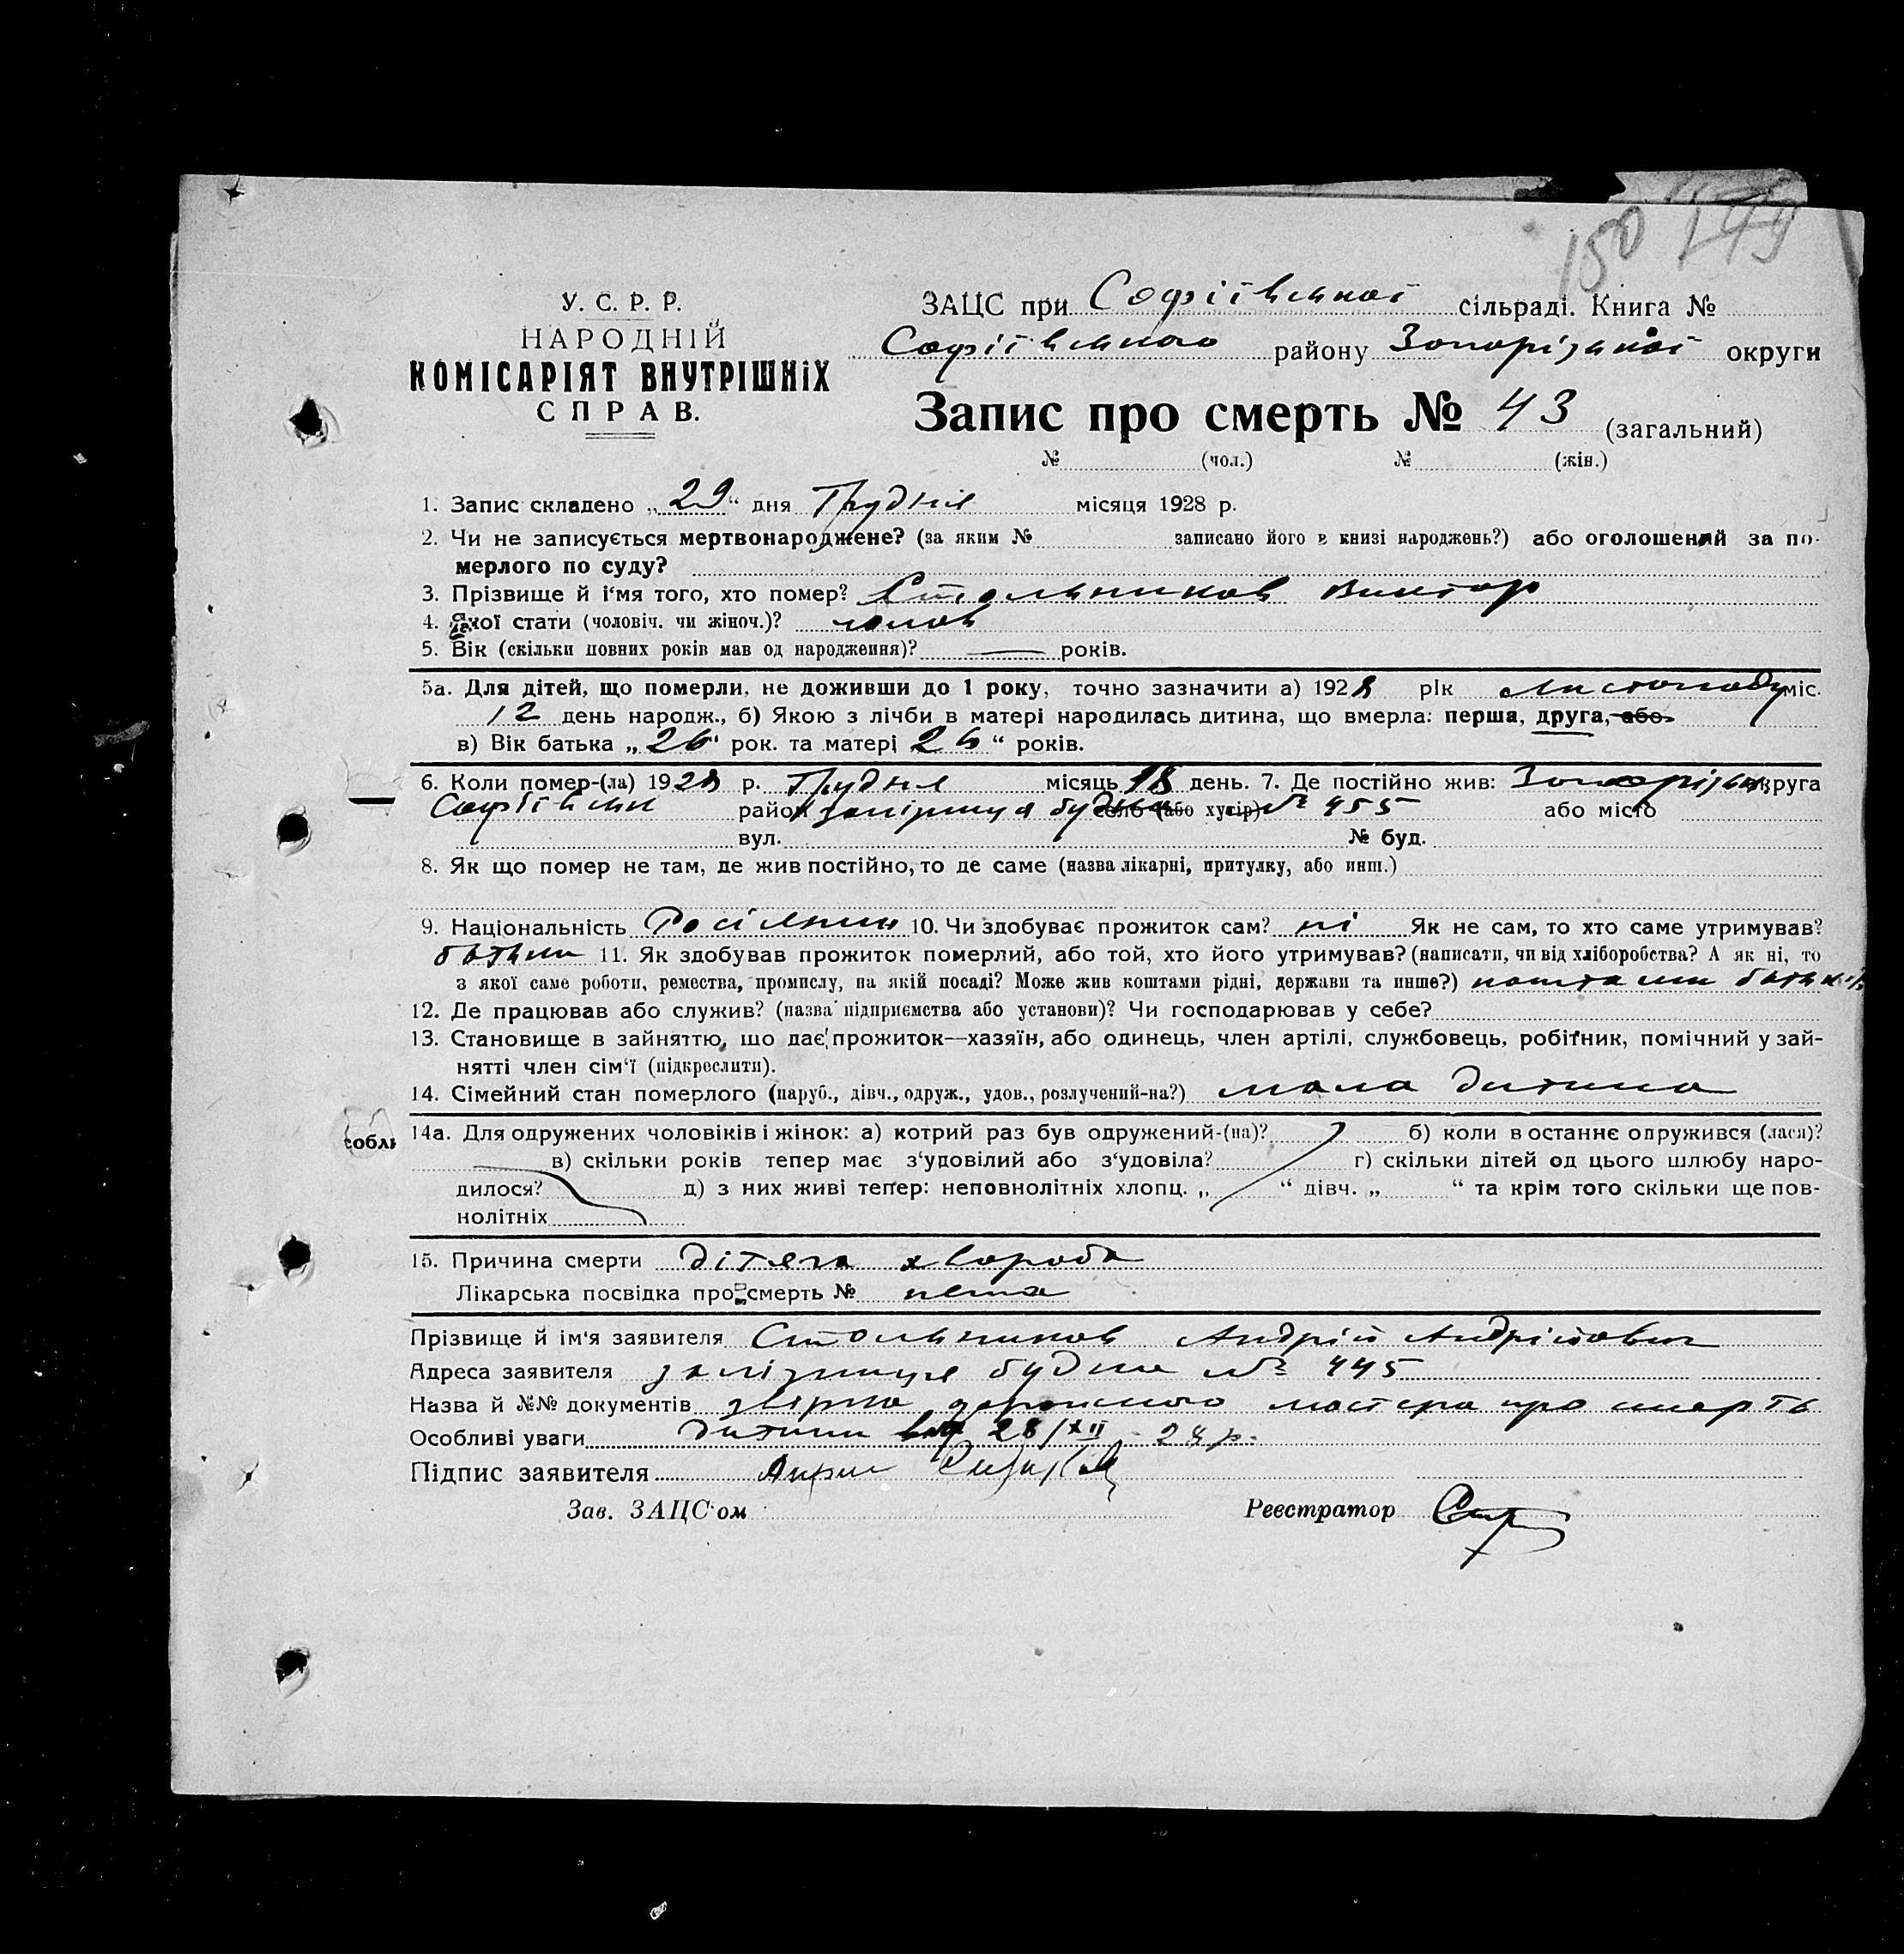 150 149
У. С. Р. Р.
НАРОДНІЙ
КОМІСАРІЯТ ВНУТРІШНІХ
СПРАВ.
ЗАЦС при Софіївській сільраді. Книга №
Софіївського району Запорізької округи
Запис про смерть № 43 (загальний)
№ (чол.) № (жін.)
1. Запис складено „29“ дня Грудня місяця 1928 р.
2. Чи не записується мертвонароджене? (за яким № записано його в книзі народжень?) або оголошений за по-
мерлого по суду?
3. Прізвище й і'мя того, хто помер? Стольников Виктор
4. Якої стати (чоловіч. чи жіноч.)? чолов
5. Вік (скільки повних років мав од народження)? — років.
5а. Для дітей, що померли, не доживши до 1 року, точно зазначити а) 1928 рік Листопаду міс.
12 день народж., б) Якою з лічби в матері народилась дитина, що вмерла: перша, друга, або
в) Вік батька „26“ рок. та матері 26“ років.
6. Коли помер-(ла) 1928 р. Грудня місяць 18 день. 7. Де постійно жив: Запорізьк округа
Софіївськ район залізниця будка село (або хутір) № 455 або місто
вул. № буд.
8. Як що помер не там, де жив постійно, то де саме (назва лікарні, притулку, або инш.)
9. Національність Росіянин 10. Чи здобуває прожиток сам? ні Як не сам, то хто саме утримував?
батьки 11. Як здобував прожиток померлий, або той, хто його утримував? (написати, чи від хліборобства? А як ні, то
з якої саме роботи, ремества, промислу, на якій посаді? Може жив коштами рідні, держави та инше?) коштами батьків
12. Де працював або служив? (назва підприємства або установи)? Чи господарював у себе?
13. Становище в зайняттю, що дає прожиток—хазяїн, або одинець, член артілі, службовець, робітник, помічний у зай-
нятті член сім'ї (підкреслити).
14. Сімейний стан померлого (паруб., дівч., одруж., удов., розлучений-на?) мала дитина
собли
14а. Для одружених чоловіків і жінок: а) котрий раз був одружений-(на)? б) коли в останнє одружився (лася)?
в) скільки років тепер має з'удовілий або з'удовіла? г) скільки дітей од цього шлюбу наро-
дилося? д) з них живі тепер: неповнолітніх хлопц. „ “ дівч. „ “ та крім того скільки ще пов-
нолітніх
15. Причина смерти дітяча хвороба
Лікарська посвідка про смерть № нема
Прізвище й ім'я заявителя Стольников Андрій Андрійович
Адреса заявителя залізниця будка № 445
Назва й №№ документів довірка дорожного мастера про смерть
Особливі уваги дитини від 28/XII - 28 р.
Підпис заявителя
Зав. ЗАЦС'ом Реєстратор